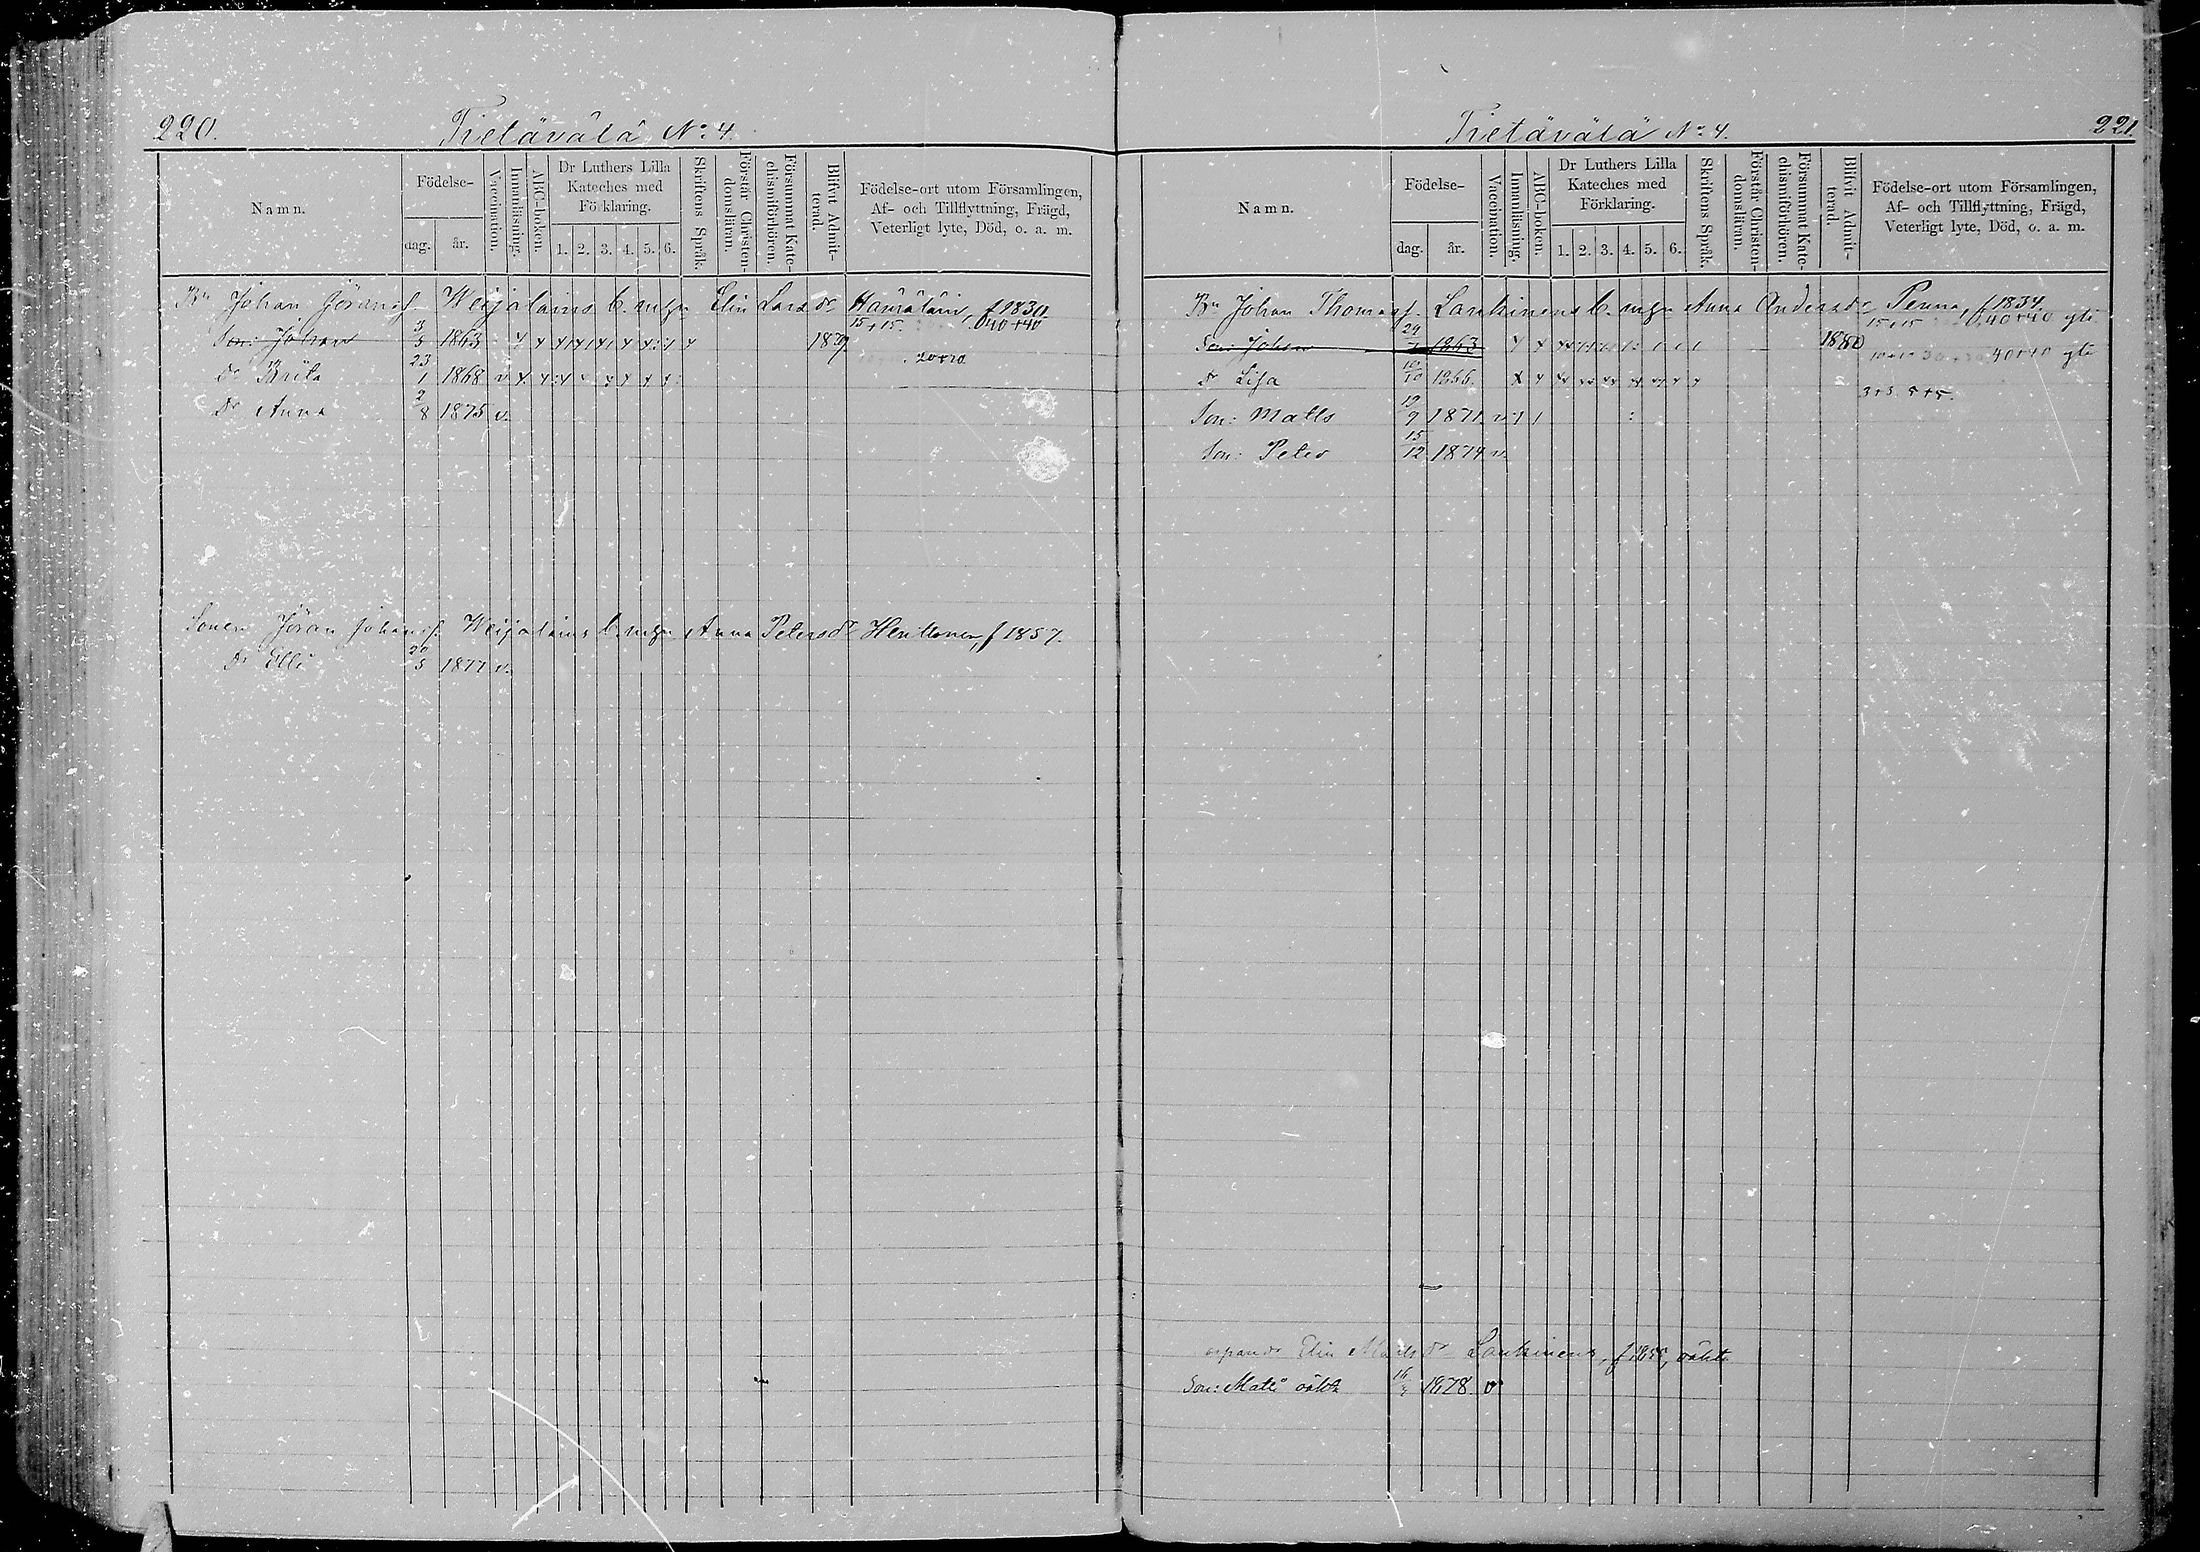 220.
Tietävälä No 4.
Namn.
Födelse-
dag.
år.
Vaccination.
Innanläsning.
ABC-boken.
Dr Luthers Lilla
Kateches med
Förklaring.
1. 2. 3. 4. 5. 6.
Skriftens Språk.
Förstår Christen-
domsläran.
Försummat Kate-
chismiförhören.
Blifvit Admit-
terad.
Födelse-ort utom Församlingen,
Af- och Tillflyttning, Frägd,
Veterligt lyte, Död, o. a. m.
Bn Johan Göransf. Weijalains b. m hu Elin Larsdr Hämäläin, f 1830.
15+15. 40+40
Son: Johan 3/5 1863 1879
20+20
Dr Brita 23/1 1868 v
Dr Anna 2/8 1875 v.
Sonen Jöran Johansf. Weijalains b. m hu Anna Petersdr Henttonen, f 1857.
Dr Elli 20/5 1877 v.
Tietävälä No 4.
221.
Namn.
Födelse-
dag.
år.
Vaccination.
Innanläsning.
ABC-boken.
Dr Luthers Lilla
Kateches med
Förklaring.
1. 2. 3. 4. 5. 6.
Skriftens Språk.
Förstår Christen-
domsläran.
Försummat Kate-
chismiförhören.
Blifvit Admit-
terad.
Födelse-ort utom Församlingen,
Af- och Tillflyttning, Frägd,
Veterligt lyte, Död, o. a. m.
Bn Johan Thomasf. Lankinens b. m hu Anna Andersdr Penna, f 1834.
15+15 40+40 gti
Son: Johan 1863 1880
40+40 gti
dr Lisa 1866.
3+3. 5+5.
Son: Matts 19/9 1871 v
Son: Peter 15/12 1874 v.
Elin Matsdr Lankinens, oäkta
Son: Matts oäkta 1878 v